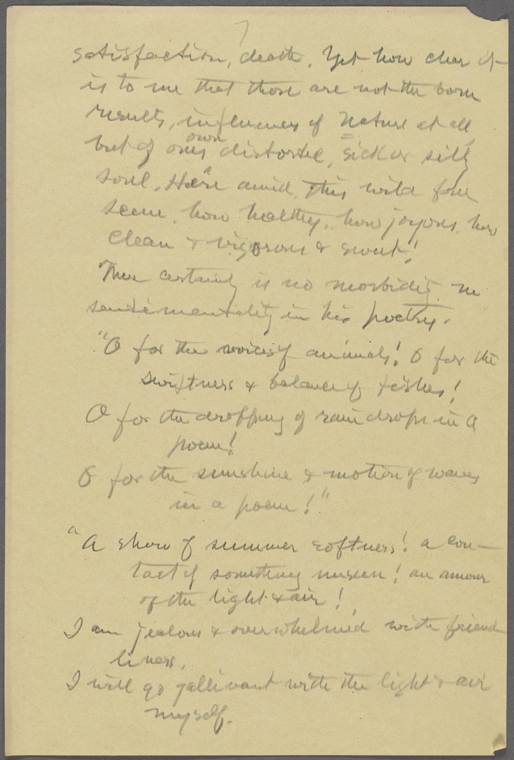 7
satisfaction, death. Yet how clear it
is to me that those are not the born
results, influences of Nature at all,
but of one's own distorted, sick or silly
soul. Here amid this wild free
scene, how healthy, how joyous, how
clean & vigorous & sweet!
There certainly is no morbidity nor
sentimentality in his poetry.
"O for the voices of animals! O for the
swiftness & balance of fishes!
O for the dropping of rain drops in a
poem!
O for the sunshine & motion of waves
in a poem!"
"A show of summer softness! a con-
tact of something unseen! an amour
of the light & air!
I am jealous & overwhelmed with friend
liness,
I will go gallivant with the light & air
myself.